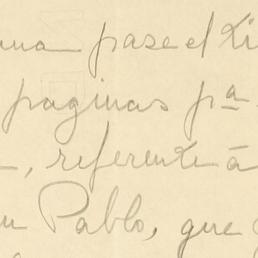 pase el
paginas pª
, referente á
Pablo, que